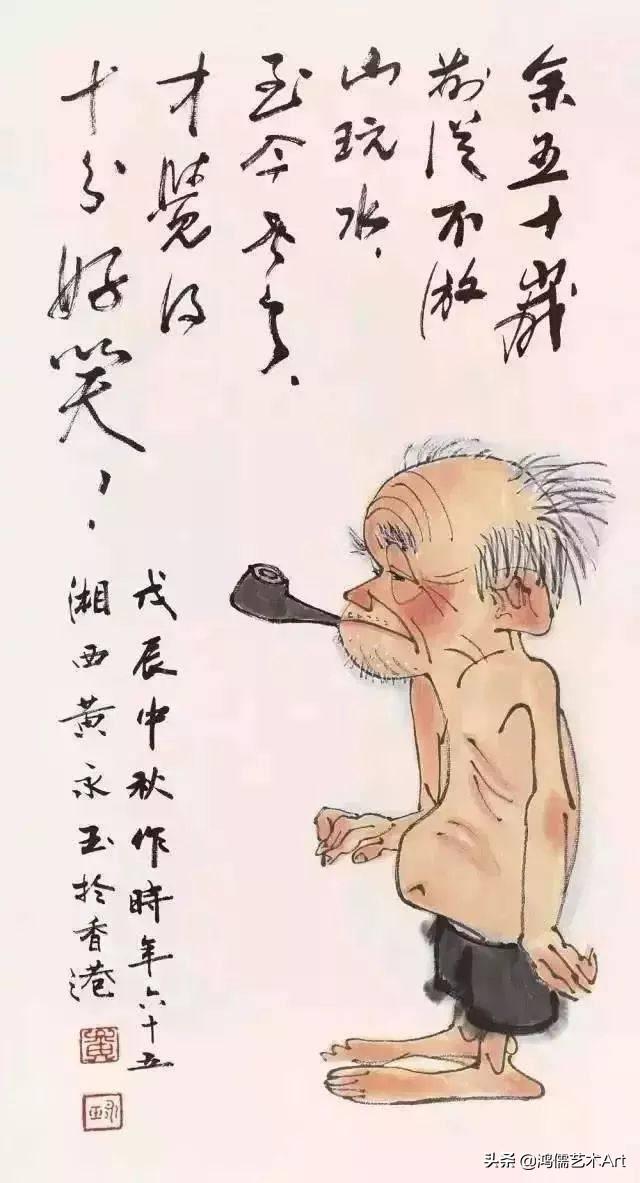 余五十歲
前從不游
山玩水，
至今老矣、
才覺得
十分好笑！
戊辰中秋作時年六十五
湘西黄永玉於香港
黄
永玉
头条 @鸿儒艺术Art